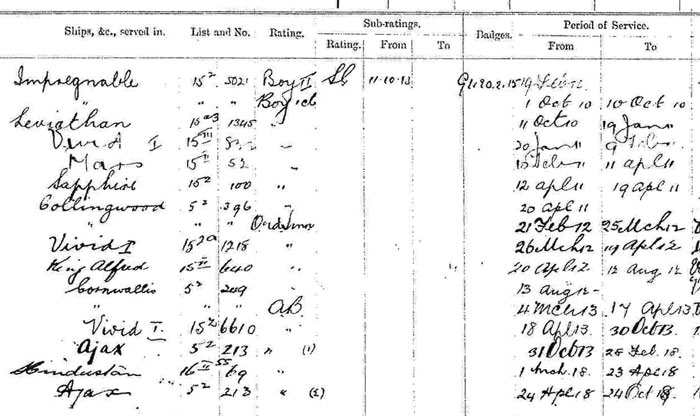 Sub-ratings. Period of Service.
Ships, &c., served in. List and No. Rating. Badges.
Rating. From To From To
Impregnable 15² 5021 Boy II SG 11.10.13 G 1 20.2.15
" " Boy 1cl 1 Oct 10 10 Oct 10
Leviathan 1345 " 11 Oct 10 19 Jan 11
Vivid I 15 III " 20 Jan 11 9 Feb 11
Mars 15 II 52 " 10 Feb 11 11 Apl 11
Sapphire 15² 100 " 12 apl 11 19 apl 11
Collingwood 5² 396 " 20 apl 11
" " " 21 Feb 12 25 Mch 12
Vivid I 15 2a 1218 " 26 Mch 12 19 Apl 12
King Alfred 15 II 640 " 20 Apl 12 12 Aug 12
Cornwallis 5² 209 " 13 Aug 12-
" " " AB 4 Mch 13 17 Apl 13
Vivid I. 15² 6610 " 18 Apl 13. 30 Oct 13
Ajax 5² 213 " (1) 31 Oct 13 28 Feb. 18.
Hindustan 16 II 55 69 " 1 Mch. 18. 23 Apl 18.
Ajax 5² 213 " (1) 24 Apl 18 24 Oct 18